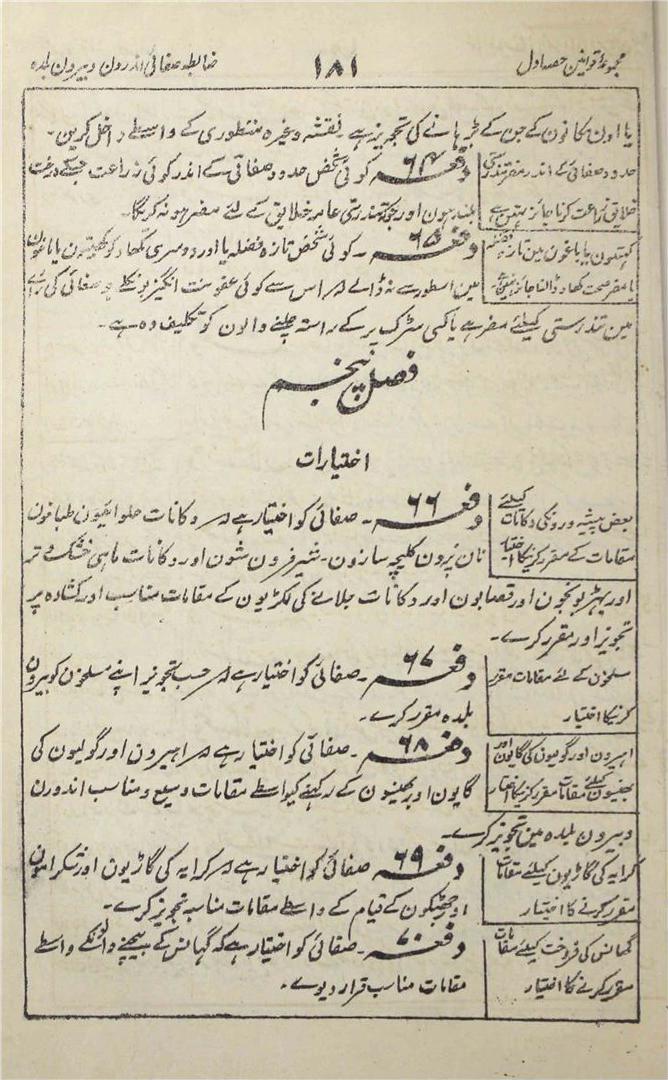 مجموعہ قوانین حصہ اول
۱۸۱
ضابطہ صفائی اندرون و بیرون بلدہ
یا اون مکانون کے جن کے بڑہانے کی تجویز ہے۔ نقشہ وغیرہ منظوری کے واسطے داخل کرین۔
حدود صفائی کے اندر مضر تندرستی
خلایق زراعت کرنا جائز نہین ہے
دفعہ ۶۴ کوئی شخص حدود صفائی کے اندر کوئی زراعت جسکے درخت
بلند ہون اور جو تندرستی عامہ خلایق کے لئے مضر ہو نہ کریگا۔
کھیتون یا باغون مین تازہ فضلہ
یا مضر صحت کھاد ڈالنا جائز نہین ہے۔
دفعہ ۶۵۔ کوئی شخص تازہ فضلہ یا اور دوسری کھاد کو کھیتون یا باغون
مین اسطور سے نہ ڈالے کہ اس سے کوئی عفونت انگیز بو نکلے جو صفائی کی رائے
مین تندرستی کیلئے مضر ہے یا کسی سڑک پر کے راستہ چلنے والون کو تکلیف دہ ہے۔
فصل پنجم
اختیارات
بعض پیشہ ورونکی دکانات کیلئے
مقامات کے مقرر کرنیکا اختیار
دفعہ ۶۶۔ صفائی کو اختیار ہے کہ دکانات حلوائیون طباخون
نان پزون کلیچہ سازون۔ شیر فروشون اور دکانات ماہی خشک و تر
اور بہڑبونجون اور قصابون اور دکانات جلانے کی لکڑیون کے مقامات مناسب اور کشادہ پر
تجویز اور مقرر کرے۔
مسلخون کے لئے مقامات مقرر
کرنیکا اختیار
دفعہ ۶۷۔ صفائی کو اختیار ہے کہ حسب تجویز اپنے مسلخون کو بیرون
بلدہ مقرر کرے۔
اہیرون اور گولیون کی گایون اور
بھینسون کیلئے مقامات مقرر کرنیکا اختیار
دفعہ ۶۸۔ صفائی کو اختیار ہے کہ اہیرون اور گولیون کی
گایون اور بھینسون کے رکہنے کیواسطے مقامات وسیع و مناسب اندرون
و بیرون بلدہ مین تجویز کرے۔
کرایہ کی گاڑیون کیلئے مقامات
مقرر کرنے کا اختیار
دفعہ ۶۹ صفائی کو اختیار ہے کہ کرایہ کی گاڑیون اور شکرامون
اور جھٹکون کے قیام کے واسطے مقامات مناسب تجویز کرے۔
گھانس کی فروخت کیلئے مقامات
مقرر کرنے کا اختیار
دفعہ ۷۰۔ صفائی کو اختیار ہے کہ گہانس کے بیچنے والونکے واسطے
مقامات مناسب قرار دیوے۔